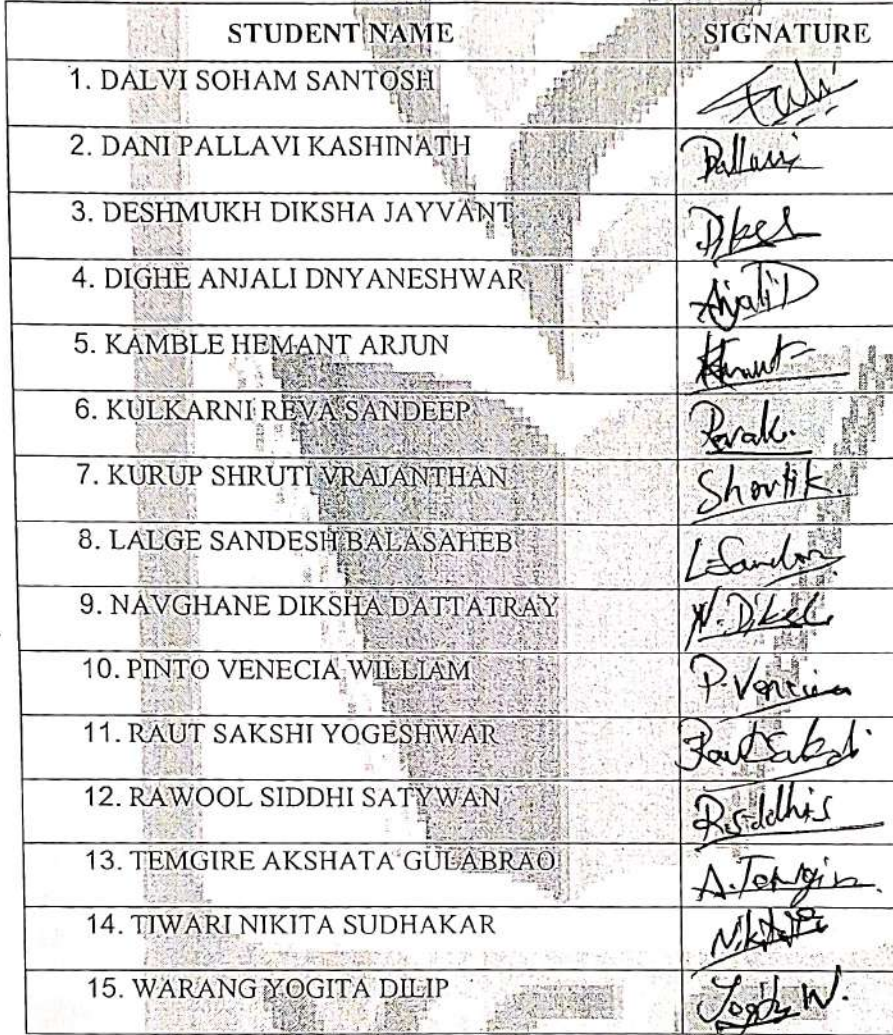 STUDENT NAME SIGNATURE
1. DALVI SOHAM SANTOSH
2. DANI PALLAVI KASHINATH Pallavi
3. DESHMUKH DIKSHA JAYVANT
4. DIGHE ANJALI DNYANESHWAR Anjali D
5. KAMBLE HEMANT ARJUN
6. KULKARNI REVA SANDEEP Reva K.
7. KURUP SHRUTI VRAJANTHAN
8. LALGE SANDESH BALASAHEB
9. NAVGHANE DIKSHA DATTATRAY
10. PINTO VENECIA WILLIAM P. Venecia
11. RAUT SAKSHI YOGESHWAR
12. RAWOOL SIDDHI SATYWAN
13. TEMGIRE AKSHATA GULABRAO
14. TIWARI NIKITA SUDHAKAR
15. WARANG YOGITA DILIP